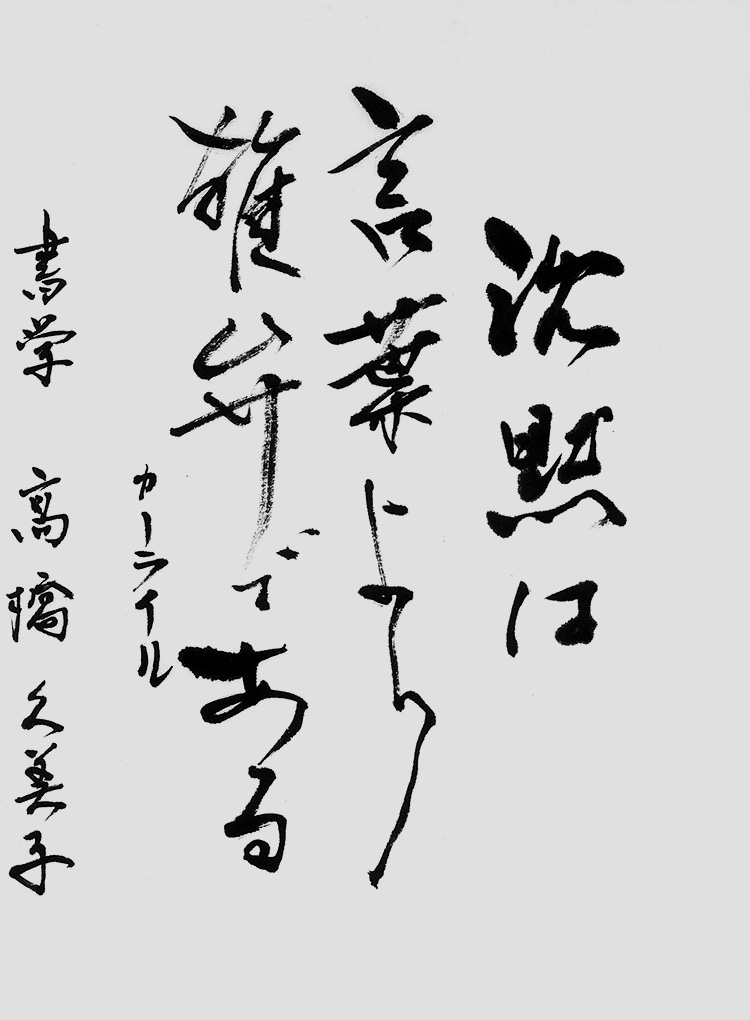 沈黙は
言葉より
雄弁である
カーライル
書学 高橋久美子